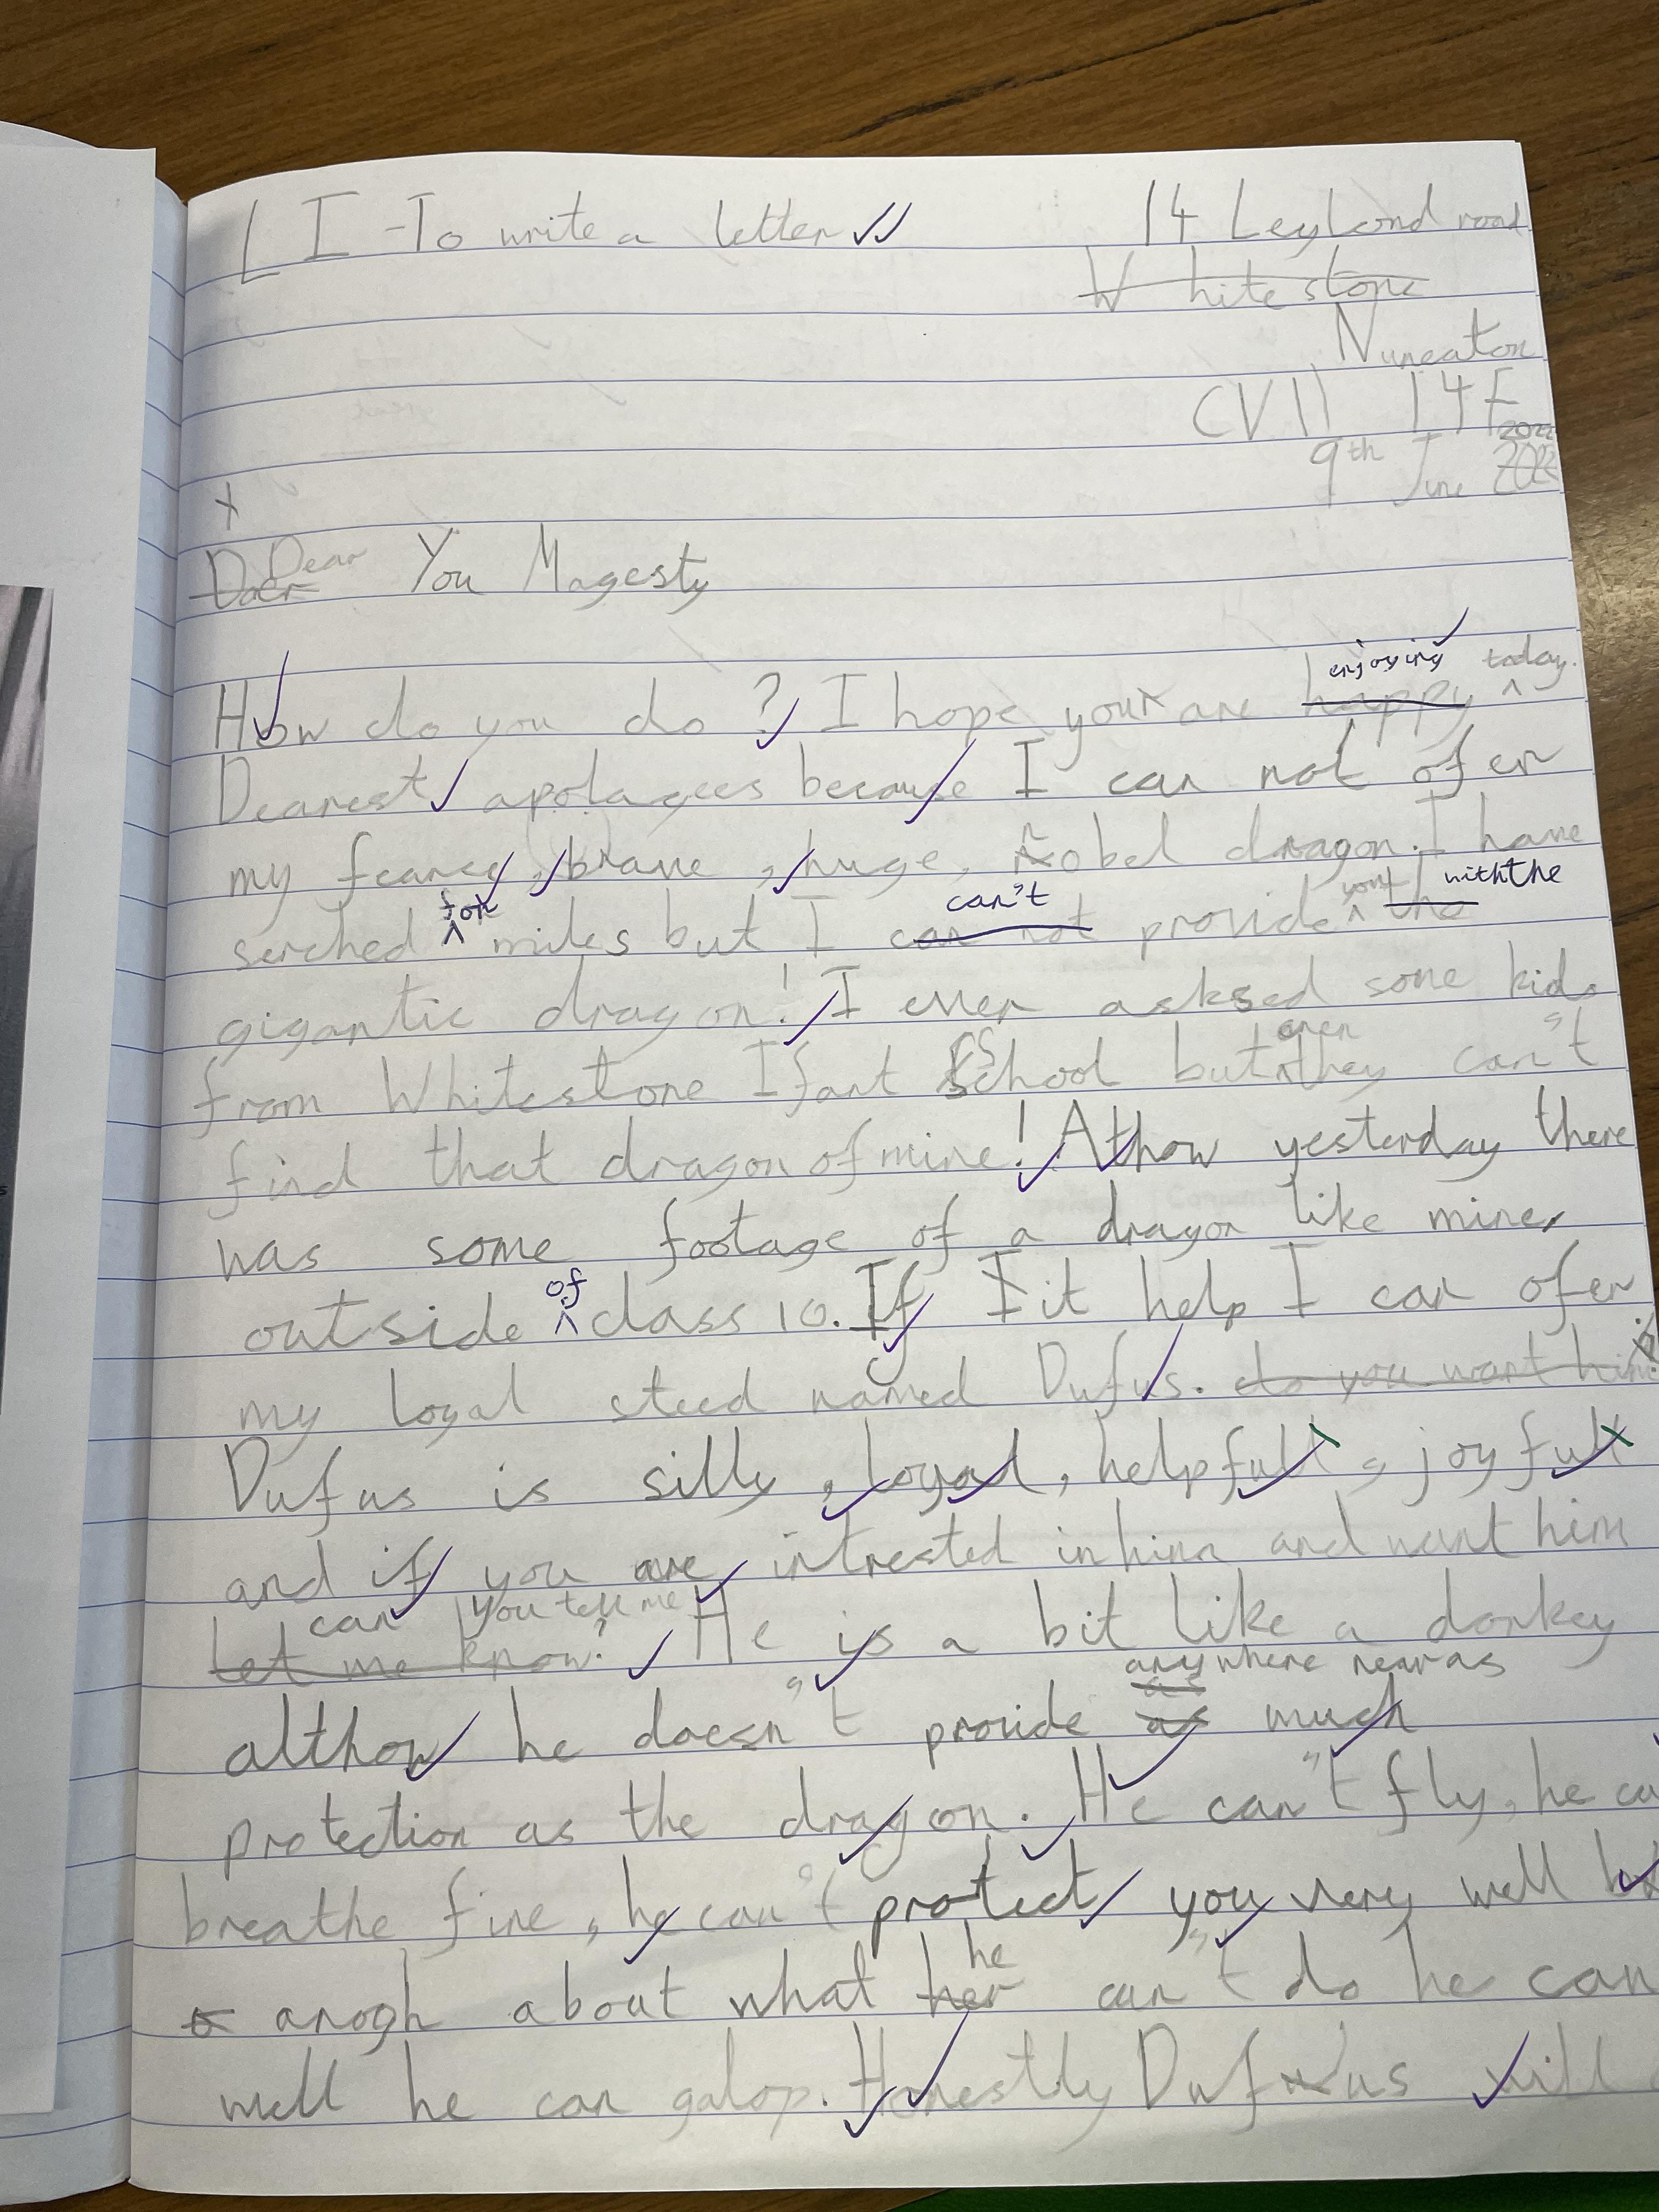 LI - To write a letter 14 Leyland road
Whitestone
Nuneaton
CV11 14F
2022
9th June
Daer Dear You Magesty
enjoying today.
How do you do? I hope your are happy
Dearest apolagees because I can not ofer
my fearcy, brave, huge, nobel dragon. I have
for can't you with the
serched miles but I can not provide the
gigantic dragon! I even asksed some kids
even
from Whitestone Ifant School but they can't
find that dragon of mine! Althow yesterday there
was some footage of a dragon like mine,
of
outside class 10. If I it help I can ofer
my loyal steed named Dufus. do you want him?
Dufus is silly, loyal, helpfull, joyfull
and if you are intrested in him and want him
can you tell me
Let me know? He is a bit like a donkey
anywhere near as
althow he doesn't provide as much
protection as the dragon. He can't fly, he ca
breathe fire, he can't protect you very well
he
anogh about what her can't do he can
well he can galop. Honestly Dufus will